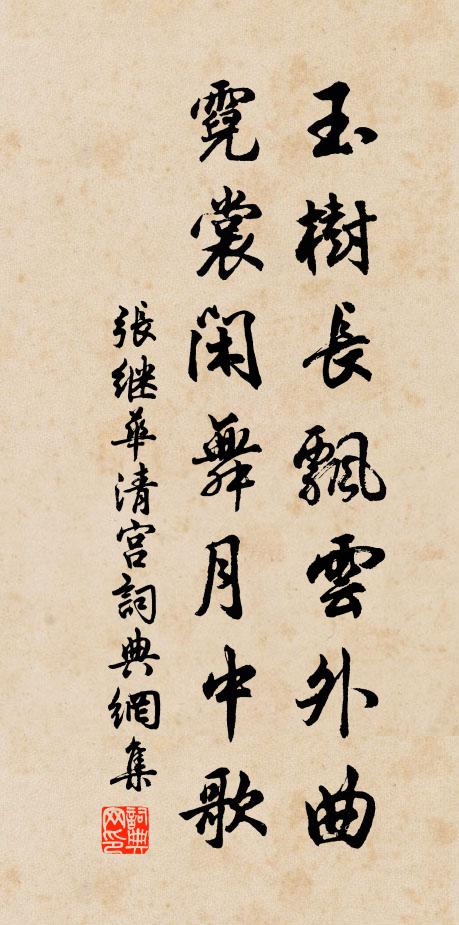 玉樹長飄雲外曲
霓裳闲舞月中歌
張继華清宫詞典網集
詞典网印